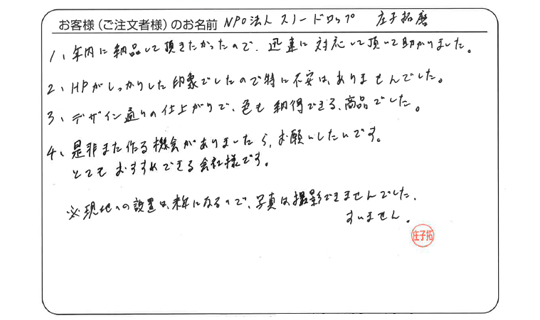 お客様（ご注文者様）のお名前 NPO法人 スノードロップ 庄子拓磨
1、年内に納品して頂きたかったので、迅速に対応して頂いて助かりました。
2、HPがしっかりした印象でしたので特に不安は、ありませんでした。
3、デザイン通りの仕上がりで、色も納得できる、商品でした。
4、是非また作る機会がありましたら、お願いしたいです。
とてもおすすめできる会社様です。
※現地への設置は、来年になるので、写真は撮影できませんでした。
すいません。
庄子拓